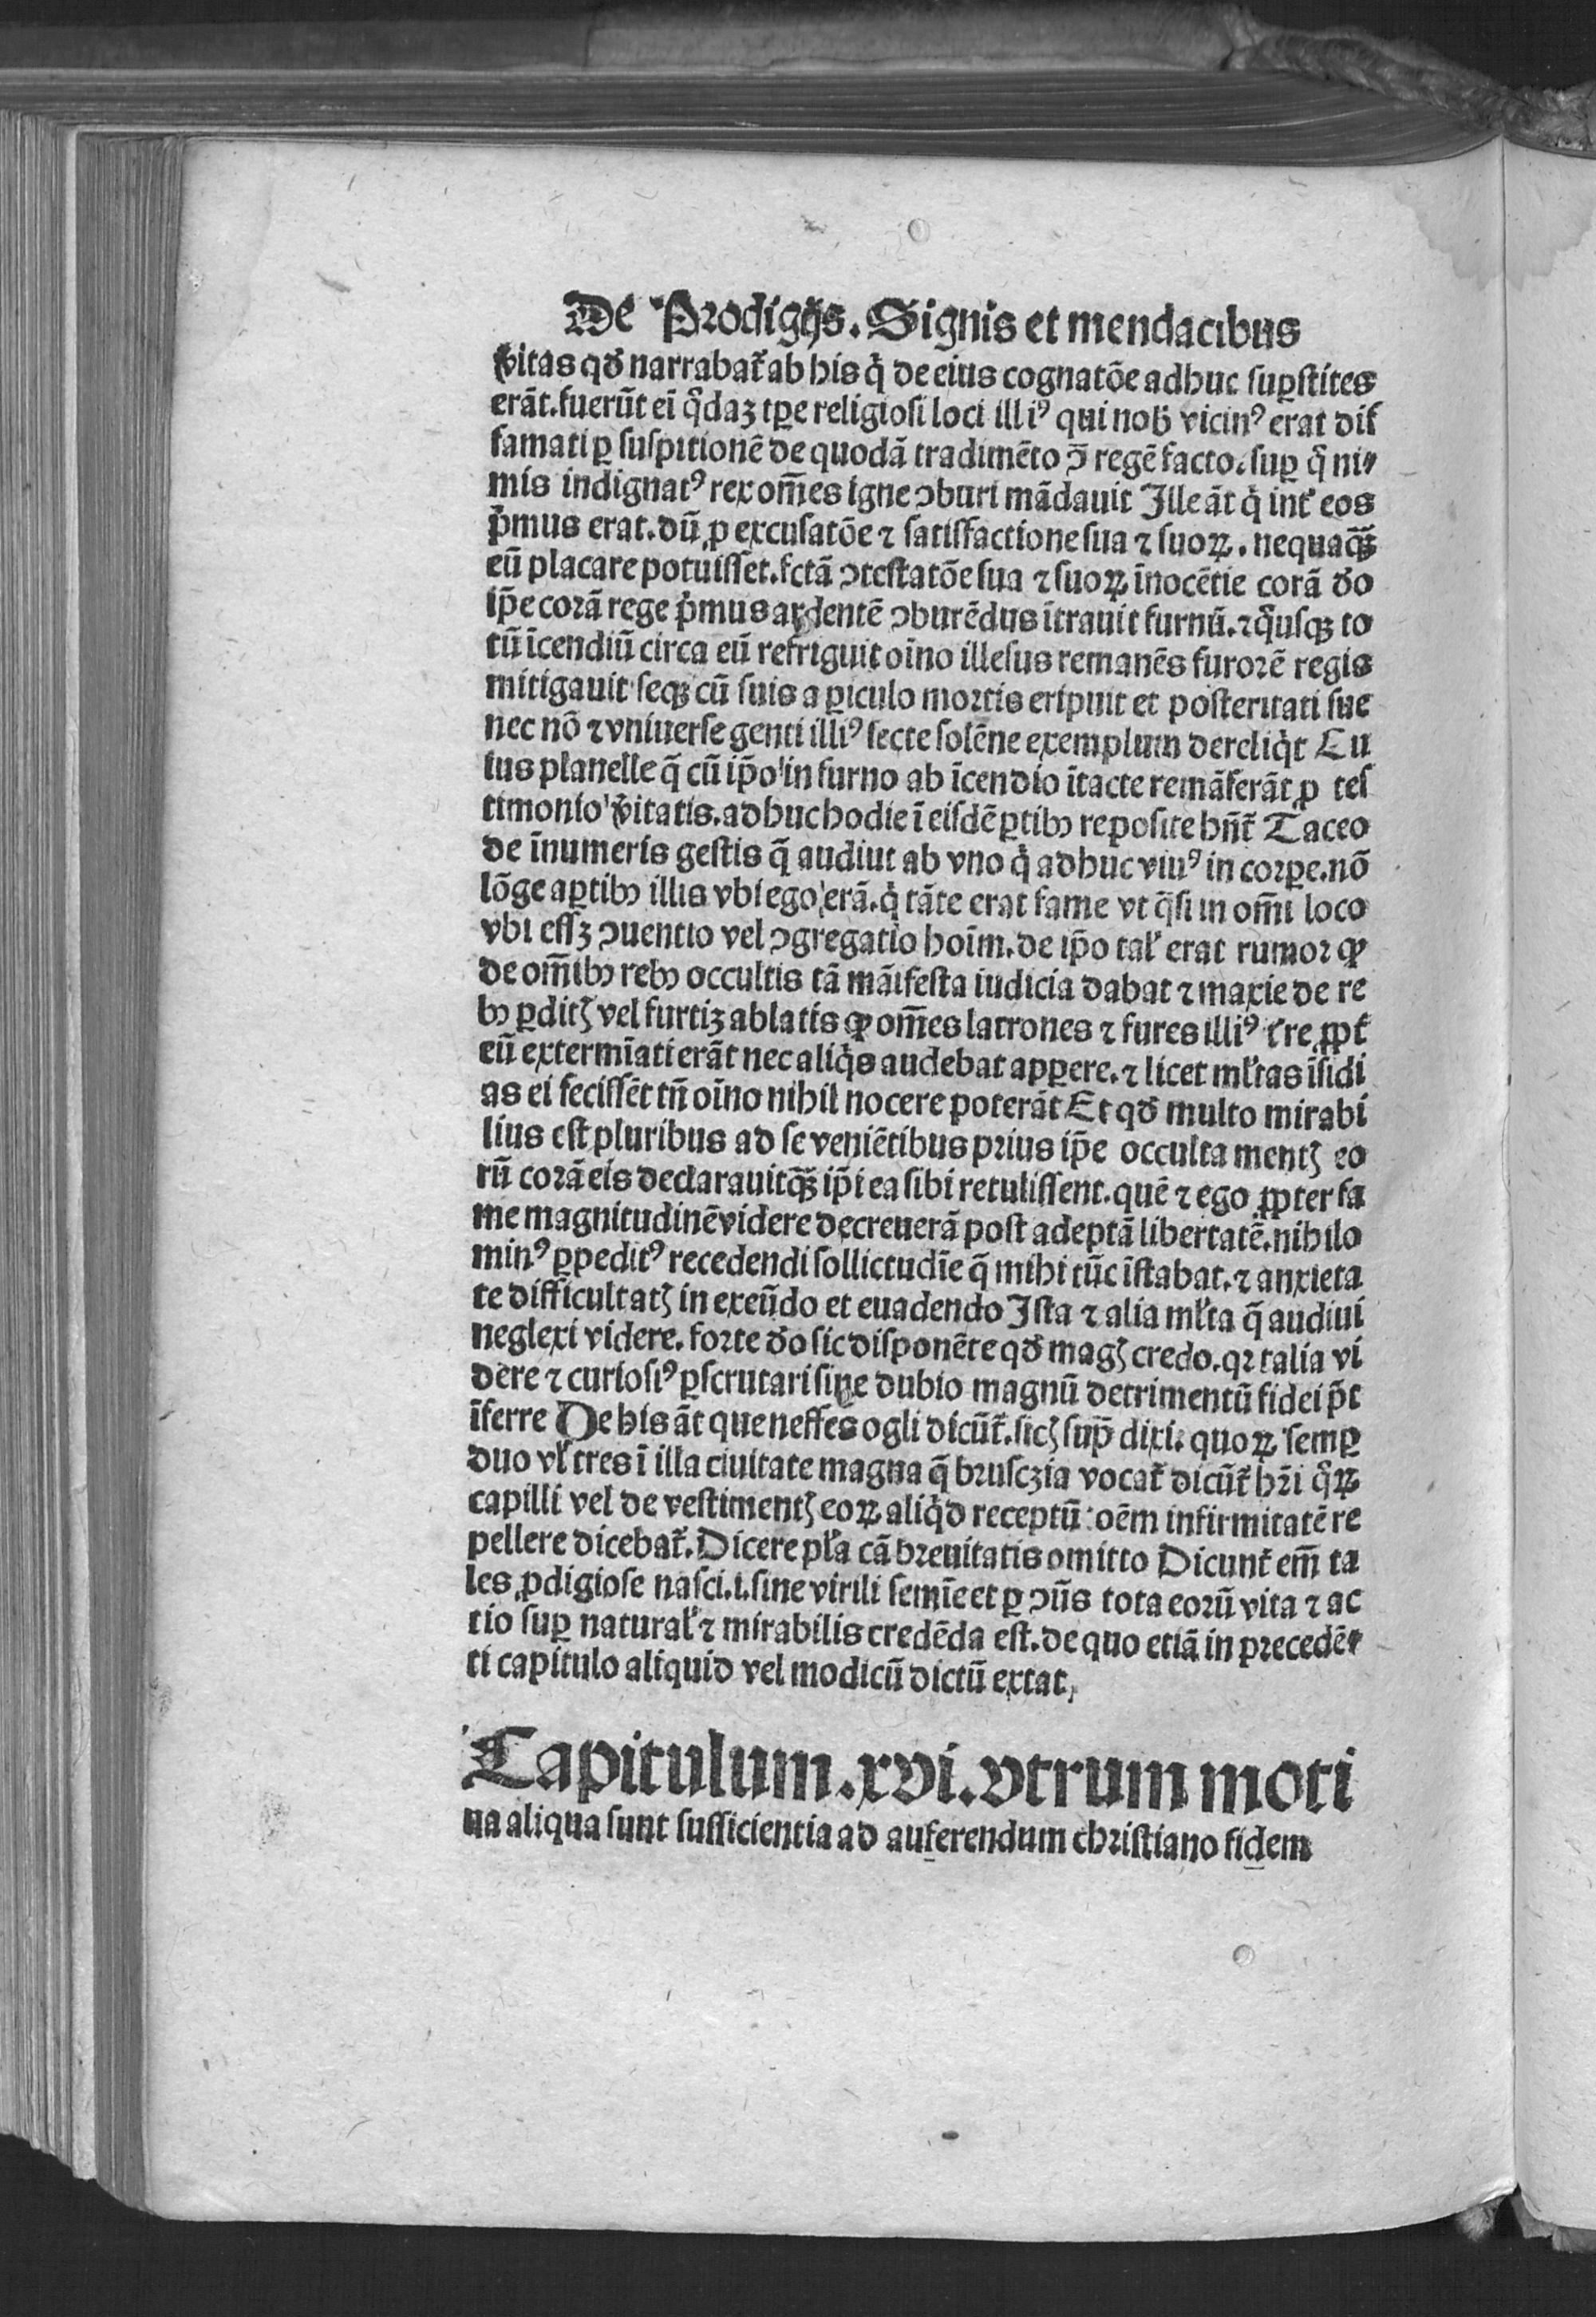 De Prodigijs. Signis et mendacibus
v̾itas qd̾ narrabat᷑ ab his q̇ de eius cognatōe adhuc suꝑstites
erāt. fuerūt eī q̊daꝫ tꝑe religiosi loci illiꝰ qui nob̾ vicinꝰ erat dif
famati ꝑ suspitionē de quodā tradimēto ↄ̄ regē facto. suꝑ q̊ ni⸗
mis indignatꝰ rex om̄es igne ↄburi mādauit Ille āt q̇ int᷑ eos
ṗmus erat. dū ꝓ excusatōe ⁊ satisfactione sua ⁊ suoꝝ. nequaq̄ꝫ
eū placare potuisset. fctā ↄtestatōe sua ⁊ suoꝝ īnocētie corā do
ip̄e corā rege ṗmus ardentē ↄburēdus ītrauit furnū. ⁊ q̊usqꝫ to
tū īcendiū circa eū refriguit oīno illesus remanēs furorē regis
mitigauit seqꝫ cū suis a ꝑiculo mortis eripuit et posteritati sue
nec nō ⁊ vniuerse genti illiꝰ secte solēne exemplum dereliq̇t Eu
ius planelle q̄ cū ip̄o in furno ab īcendio ītacte remāserāt ꝓ tes
timonio v̾itatis. adhuc hodie ī eisdē ꝑtibꝫ reposite hn̄t᷑ Taceo
de īnumeris gestis q̄ audiui ab vno q̇ adhuc viuꝰ in corꝑe. nō
lōge a ꝑtibꝫ illis vbi ego erā. q̇ tāte erat fame vt q̄si in om̄i loco
vbi essꝫ ↄuentio vel ↄgregatio hoīm. de ip̄o tal̾ erat rumor ꝙ
de om̄ibꝫ rebꝫ occultis tā māifesta iudicia dabat ⁊ maxīe de re
bꝫ ꝑditꝭ vel furtiꝫ ablatis ꝙ om̄es latrones ⁊ fures illiꝰ t̾re ꝓpt᷑
eū extermīati erāt nec aliq̇s audebat apꝑere. ⁊ licet ml̾tas īsidi
as ei fecissēt tn̄ oīno nihil nocere poterāt Et qd̾ multo mirabi
lius est pluribus ad se veniētibus prius ip̄e occulta mentꝭ eo
rū corā eis declarauit q̄ꝫ ip̄i ea sibi retulissent. quē ⁊ ego ꝓpter fa
me magnitudinē videre decreuerā post adeptā libertatē. nihilo
minꝰ ꝑpeditꝰ recedendi sollicitudīe q̄ mihi tūc īstabat. ⁊ anxieta
te difficultatꝭ in exeūdo et euadendo Ista ⁊ alia ml̾ta q̄ audiui
neglexi videre. forte do sic disponēte qd̾ magꝭ credo. qꝛ talia vi
dere ⁊ curiosiꝰ ꝑscrutari sine dubio magnū detrimentū fidei p̄t
īferre De his āt que neffes ogli dicūt᷑. sicꝭ sup̄ dixi. quoꝝ semꝑ
duo vl̾ tres ī illa ciuitate magna q̄ brusczia vocat᷑ dicūt᷑ hr̄i q̊ꝝ
capilli vel de vestimentꝭ eoꝝ aliq̇d receptū oēm infirmitatē re
pellere dicebat᷑. Dicere pl̾a cā breuitatis omitto Dicunt᷑ em̄ ta
les ꝓdigiose nasci. i. sine virili semīe et ꝑ ↄn̄s tota eorū vita ⁊ ac
tio suꝑ natural̾ ⁊ mirabilis credēda est. de quo etiā in precedē⸗
ti capitulo aliquid vel modicū dictū extat.
Capitulum. xvi. vtrum moti
ua aliqua sunt sufficientia ad auferendum christiano fidem